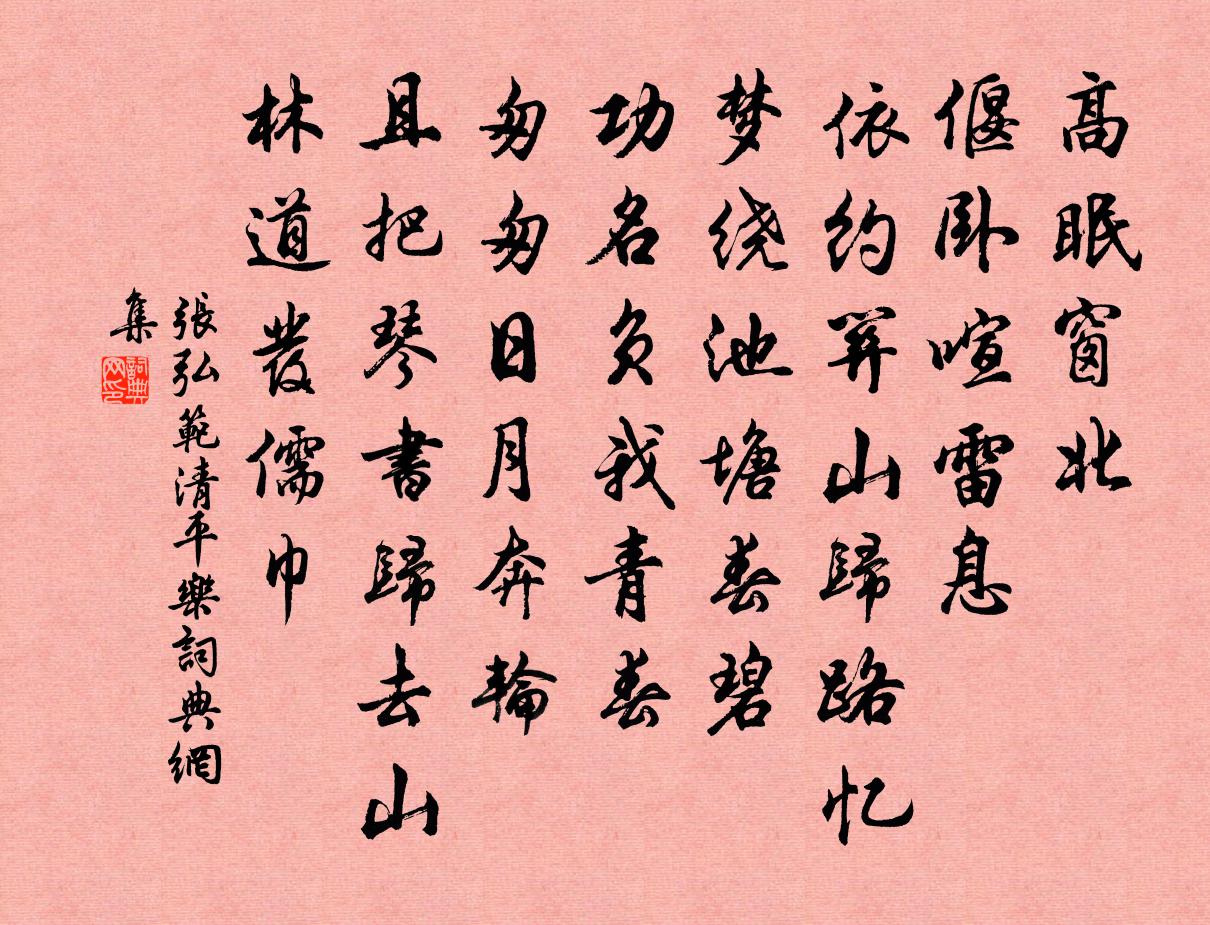 高眠窗北
偃卧喧雷息
依约笄山歸路忆
梦绕池塘春碧
功名负我青春
匆匆日月奔輪
且把琴書歸去山
林道發儒巾
張弘範清平樂詞典網
集
詞典
网印